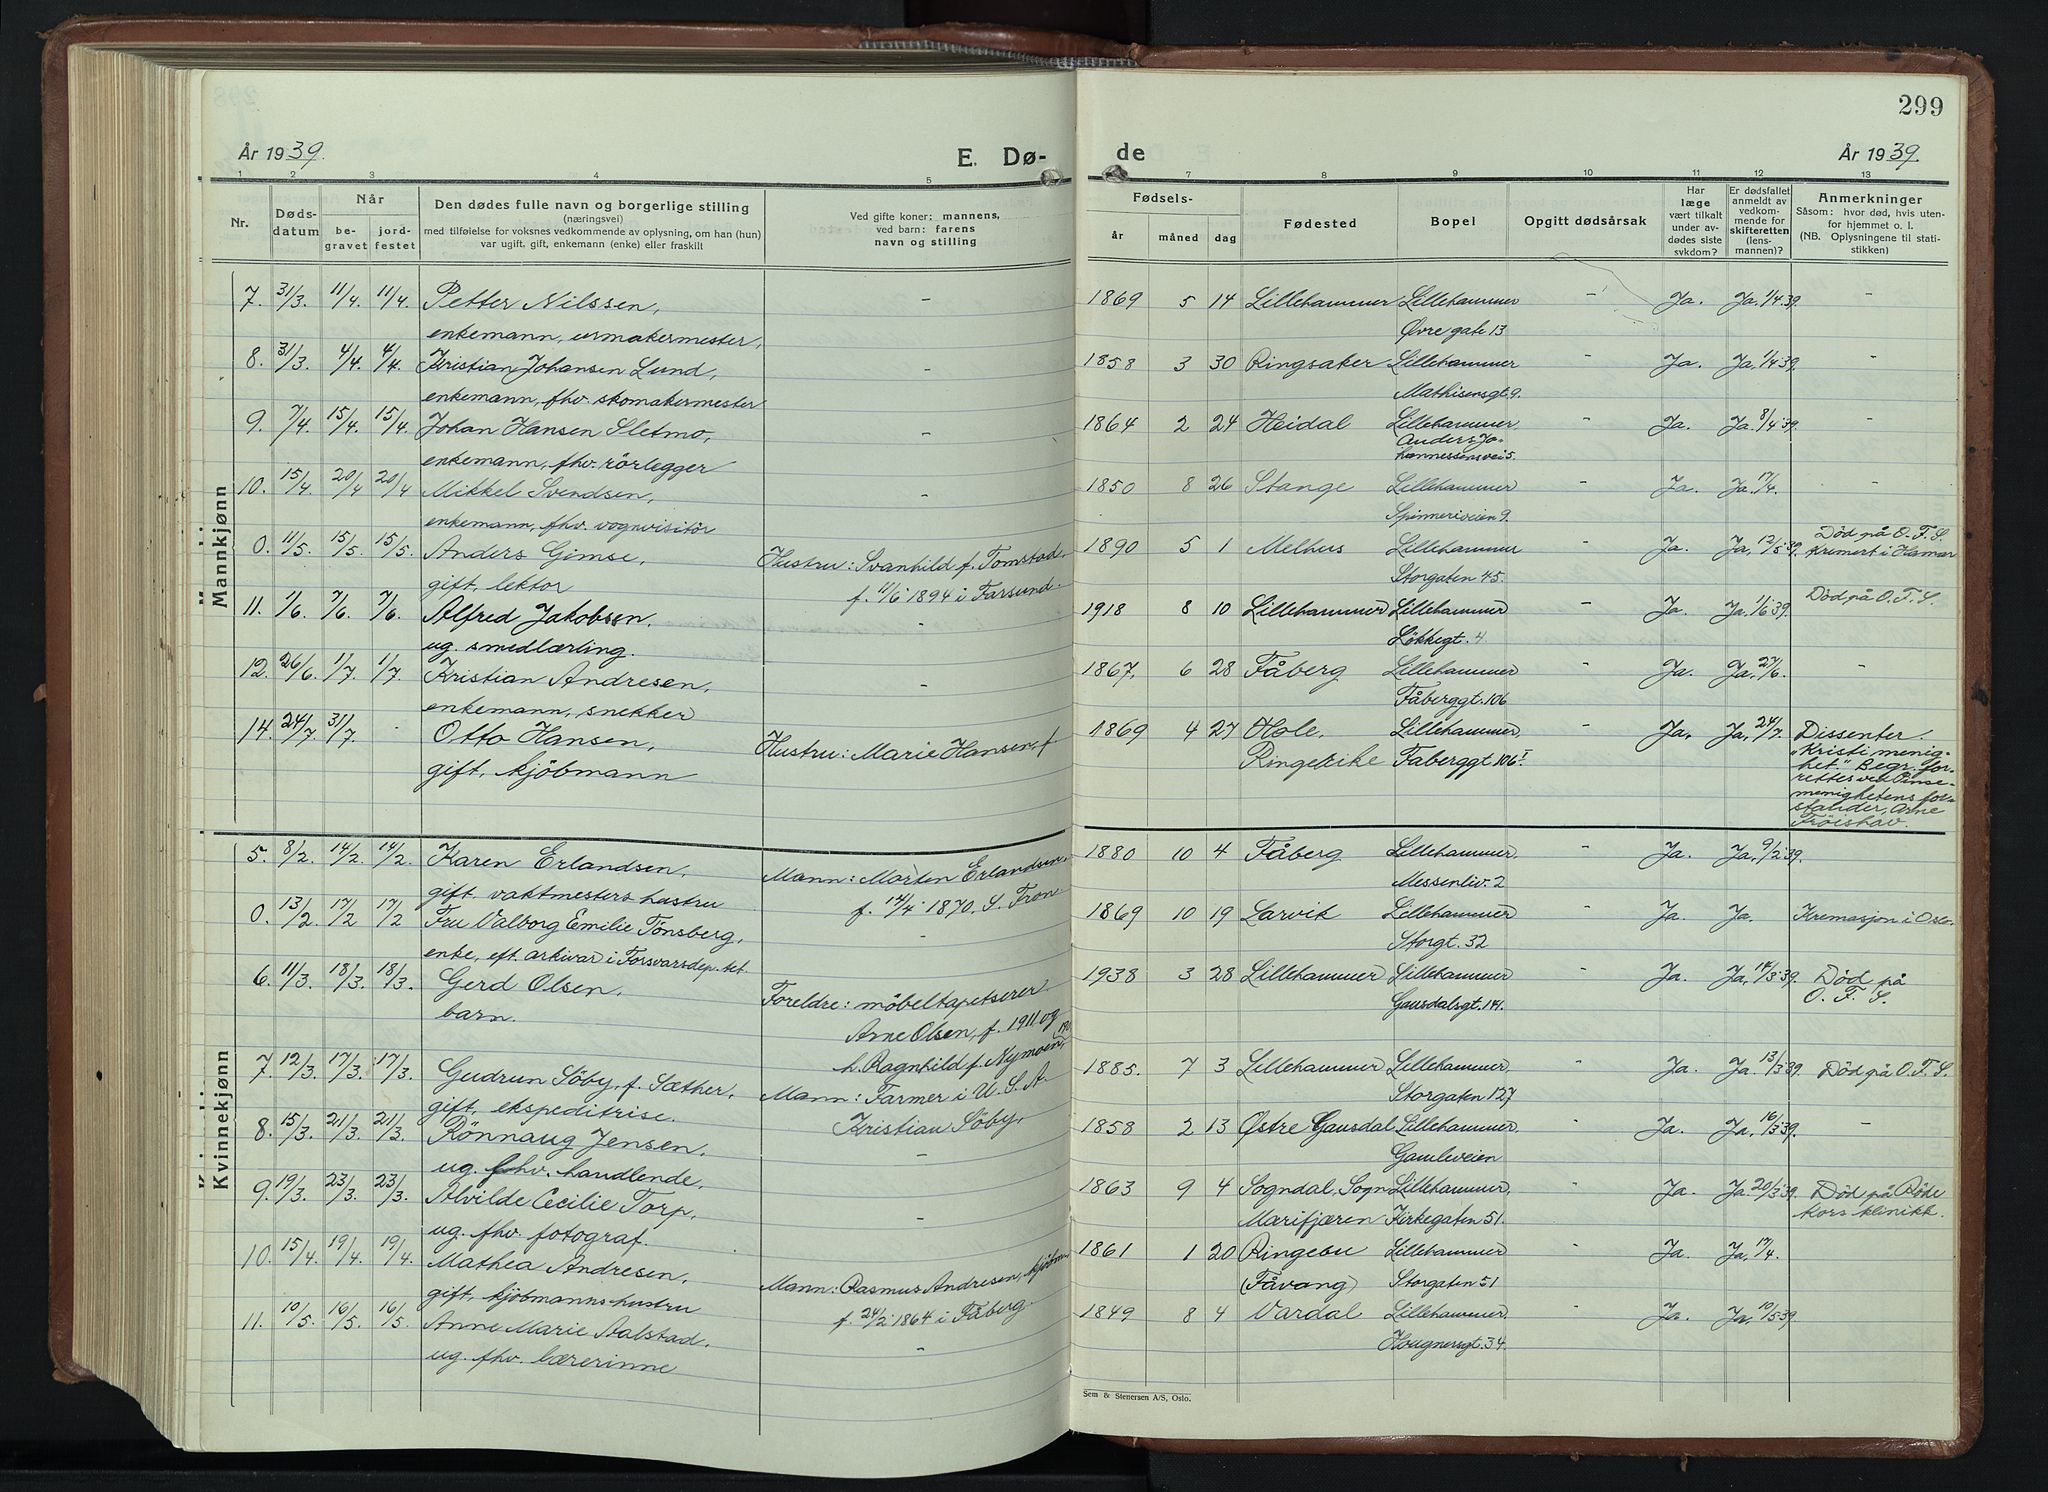 299
År 1939.
E. Dø-
de
År 1939.
1 2 3 4 5 7 8 9 10 11 12 13
Nr.
Døds-
datum
Når
be-
gravet
jord-
festet
Den dødes fulle navn og borgerlige stilling
(næringsvei)
med tilføielse for voksnes vedkommende av oplysning, om han (hun)
var ugift, gift, enkemann (enke) eller fraskilt
Ved gifte koner: mannens,
ved barn: farens
navn og stilling
Fødsels-
år måned dag
Fødested
Bopel
Opgitt dødsårsak
Har
læge
vært tilkalt
under av-
dødes siste
sykdom?
Er dødsfallet
anmeldt av
vedkom-
mende for
skifteretten
(lens-
mannen)?
Anmerkninger
Såsom: hvor død, hvis uten-
for hjemmet o. l.
(NB. Oplysningene til stati-
stikken)
Mannkjønn
7. 31/3. 11/4. 11/4. Petter Nilssen, - 1869 5 14 Lillehammer Lillehammer - Ja. Ja. 1/4 39. -
enkemann, urmakermester, Øvre gate 13
8. 31/3. 4/4. 4/4. Kristian Johansen Lund, - 1858 3 30 Ringsaker Lillehammer - Ja. Ja, 1/4 39. -
enkemann, fhv. skomakermester Mathisensgt. 9.
9. 7/4. 15/4. 15/4. Johan Hansen Sletmo, - 1864 2 24 Heidal Lillehammer. - Ja. Ja. 8/4 39. -
enkemann, fhv. rörlegger Anders Jo-
hannessensvei 5.
10. 15/4. 20/4 20/4 Mikkel Svendsen, - 1850 8 26 Stange Lillehammer - Ja. Ja. 17/4. -
enkemann, fhv. vognvisitör Spinneriveien 9.
0. 11/5. 15/5. 15/5. Anders Gimse, Hustru: Svanhild f. Tomstad, 1890 5 1 Melhus Lillehammer - Ja. Ja, 12/5 39. Död på O. F. S.
Kremert i Hamar
gift, lektor f. 11/6 1894 i Farsund. Storgaten 45.
11. 1/6. 7/6. 7/6. Alfred Jakobsen, - 1918 8 10 Lillehammer Lillehammer - Ja. Ja. 1/6 39. Död på O. F. S.
ug. smedlærling. Lökkegt. 4
12. 26/6. 1/7. 1/7. Kristian Andresen, - 1867. 6 28 Fåberg Lillehammer - Ja. Ja, 27/6. -
enkemann, snekker Fåberggt. 106
14. 24/7. 31/7. - Otto Hansen, Hustru: Marie Hansen, f 1869 4 27 Hole. Lillehammer - Ja. Ja, 24/7. Dissenter.
gift, kjöbmann Ringerike Fåberggt 106 I
"Kristi menig-
het." Begr. for-
rettes ved Pinse-
menighetens for-
stander, Arne
Fröishov.
Kvinnekjønn
5. 8/2. 14/2. 14/2. Karen Erlandsen, Mann: Morten Erlandsen, 1880 10 4 Fåberg Lillehammer. - Ja. Ja, 9/2 39.
gift, vaktmesters hustru f. 14/4 1870, S. Fron Messenliv. 2
0. 13/2. 17/2 17/2 Fru Valborg Emilie Tönsberg, - 1869 10 19 Larvik Lillehammer - Ja. Ja. Kremasjon i Oslo.
enke, eft. arkivar i Forsvarsdep.tet. Storgt. 32
6. 11/3. 18/3. 18/3. Gerd Olsen, Foreldre: möbeltapetserer 1938 3 28 Lillehammer Lillehammer - Ja. Ja, 14/3 39. Död på
O. F. S.
barn. Arne Olsen, f. 1911 og Gausdalsgt. 141.
h. Ragnhild f. Nymoen,
7. 12/3. 17/3. 17/3. Gudrun Söby, f. Sæther, Mann: Farmer i U. S. A. 1885. 7 3 Lillehammer Lillehammer. - Ja. Ja. 13/3 39. Död på O. F. S.
gift, ekspeditrise. Kristian Söby, Storgaten 127
8. 15/3. 21/3. 21/3. Rönnaug Jensen, - 1858 2 13 Østre Gausdal Lillehammer. - Ja. Ja, 16/3 39. -
ug. fhv. handlende. Gamleveien
9. 19/3. 23/3. 23/3. Alvilde Cecilie Torp, - 1863 9 4 Sogndal, Sogn Lillehammer, - Ja. Ja 20/3 39. Död på Röde
kors klinikk.
ug. fhv. fotograf. Marifjæren Kirkegaten 51.
10. 15/4. 19/4. 19/4. Mathea Andresen, Mann: Rasmus Andresen, kjöbm. 1861 1 20 Ringebu Lillehammer - Ja Ja, 17/4.
gift, kjöbmanns hustru f. 24/2 1864 i Fåberg. (Fåvang) Storgaten 51
11. 10/5. 16/5. 16/5. Anne Marie Aalstad, - 1849 8 4 Vardal Lillehammer. - Ja. Ja, 10/5 39.
ug. fhv. lærerinne Hougnersgt. 34.
Sem & Stenersen A/S, Oslo.